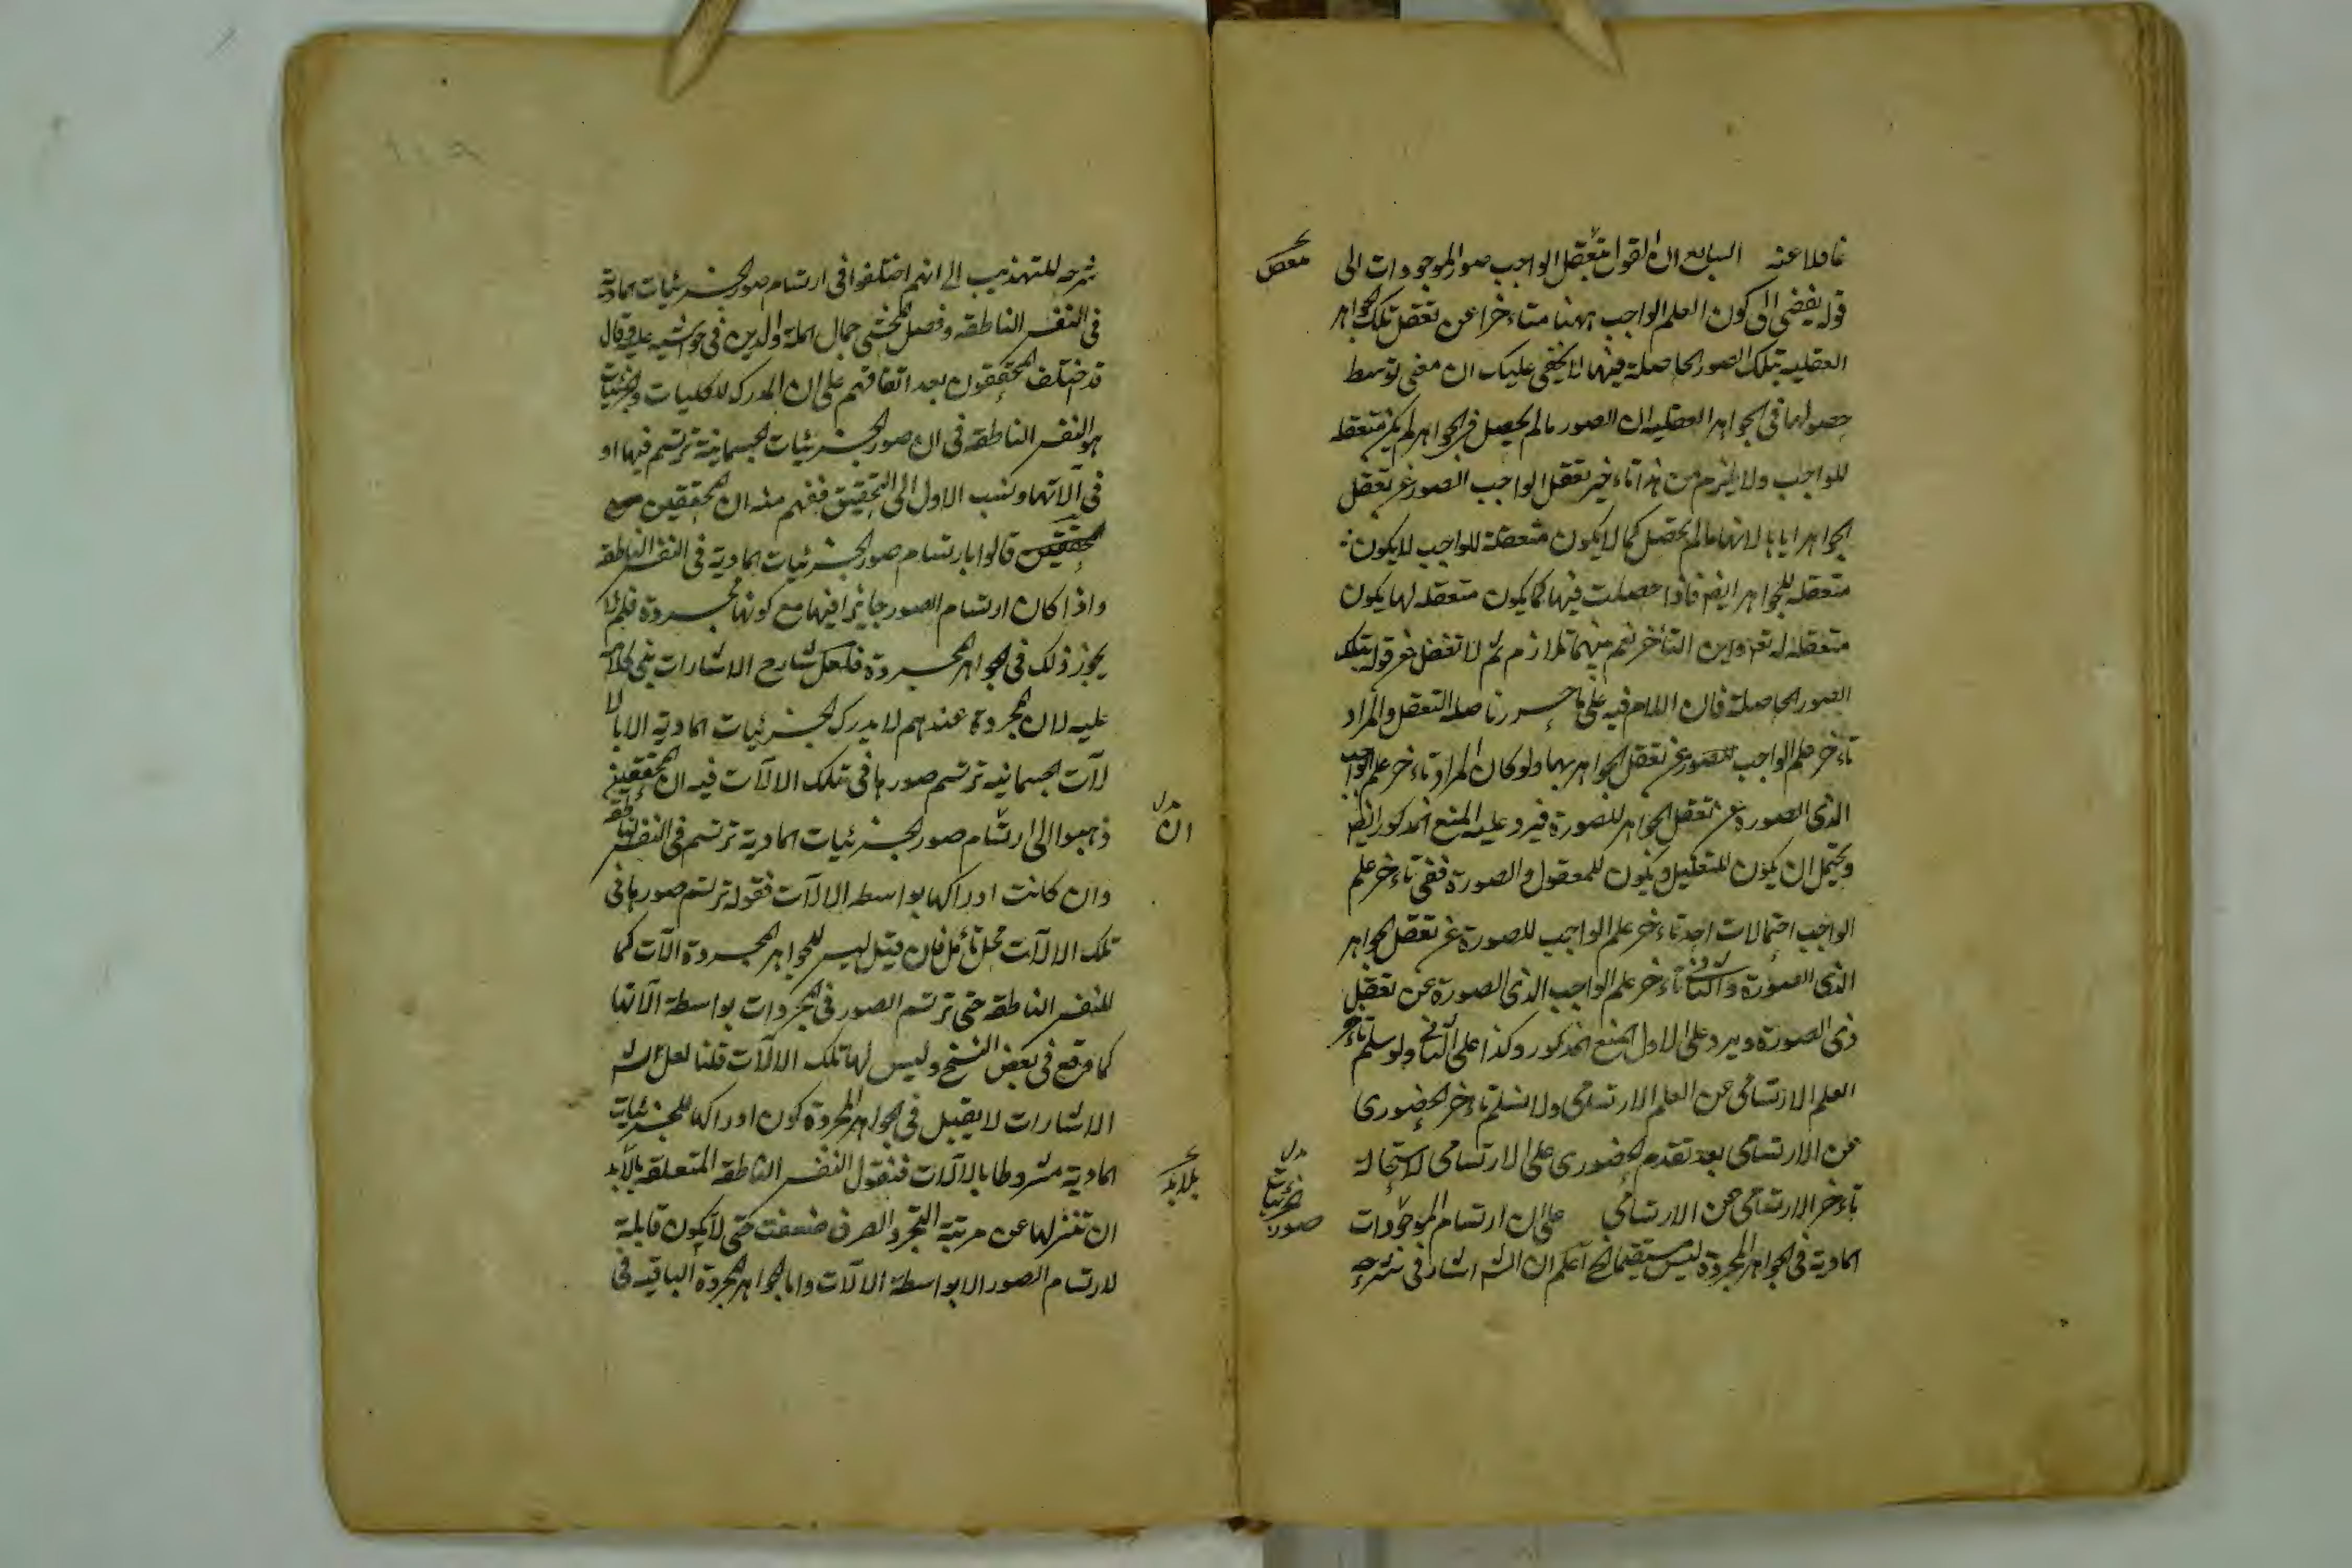 غافلا عنه السابع ان القول بتعقل الواجب صور الموجودات الى
قوله يفضى الى كون العلم الواجب ههنا متاءخرا عن تعقل تلك الجواهر
العقلية بتلك الصور الحاصلة فيها لا يخفى عليك ان معنى توسط
حصولها فى الجواهر العقلية ان الصور مالم يحصل فى الجواهر لم يكن متعقلة
للواجب ولا يلزم من هذا تاءخير تعقل الواجب الصور عن تعقل
الجواهر اياها لانها مالم تحصل كما لا يكون متعقلة للواجب لا يكون
متعقله للجواهر ايضا فاذا حصلت فيها كما يكون متعقله لها يكون
متعقله له تع واين التأخر نعم بينهما تلازم ثم لا تغفل عن قوله بتلك
الصور الحاصلة فان اللام فيه على ما حررنا صلة التعقل والمراد
تاءخر علم الواجب للصور عن تعقل الجواهر بها ولو كان المراد تاءخر علم الواجب
الذى الصورة عن تعقل الجواهر للصورة فيرد عليه المنع المذكور ايضا
ويحتمل ان يكون للتعليل ويكون للمعقول والصورة ففى تاءخر علم
الواجب احتمالات احد تاءخر علم الواجب للصورة عن تعقل الجواهر
الذى الصورة والثانى تاءخر علم الواجب الذى الصورة عن تعقل
ذى الصورة ويرد على الاول المنع المذكور وكذا على الثانى ولو سلم تاءخر
العلم الارتسامى عن العلم الارتسامى ولا نسلم تاءخر الحضورى
عن الارتسامى بعد تقدم الحضورى على الارتسامى لاستحالة
تاءخر الارتسامى عن الارتسامى على ان ارتسام الموجودات
المادية فى الجواهر المجردة ليس مستقيما الخ اعلم ان الش اشار فى شرحه
صور
الجزئيات
شرحه للتهذيب الى انهم اختلفوا فى ارتسام صور الجزئيات المادية
فى النفس الناطقة وفصل المحشى جمال الملة والدين فى حواشيه عليه وقال
قد اختلف المحققون بعد اتفاقهم على ان المدرك للكليات والجزئيات
هو النفس الناطقة فى ان صور الجزئيات الجسمانية ترتسم فيها او
فى الآتها ونسب الاول الى التحقيق ففهم منه ان المحققين
المحققين قالوا بارتسام صور الجزئيات المادية فى النفس الناطقة
واذا كان ارتسام الصور جايزا فيها مع كونها مجردة فلم لا
يجوز ذلك فى الجواهر المجردة فلعل شارح الاشارات بنى كلامه
عليه لان المجردة عندهم لا يدرك الجزئيات المادية الا با لا
لآت الجسمانية ترتسم صورها فى تلك الالآت فيه ان المحققين
ذهبوا الى ارتسام صور الجزئيات المادية ترتسم فى النفس الناطقة
ان
وان كانت ادراكها بواسطه الالآت فقوله ترتسم صورها فى
تلك الالآت محل تأمل فان قيل ليس للجواهر المجردة الآت كما
للنفس الناطقة حتى ترتسم الصور فى المجردات بواسطة الآتها
كما وقع فى بعض النسخ وليس لها تلك الالآت قلنا لعل ش
الاشارات لا يقبل فى الجواهر المجردة كون ادراكها للجزئيات
المادية مشروطا بالالات فنقول النفس الناطقة المتعلقة بالابد
ان تنزلها عن مرتبة التجرد الصرف ضعفت حتى لا يكون قابلة
لارتسام الصور الا بواسطة الالآت واما الجواهر المجردة الباقيه فى